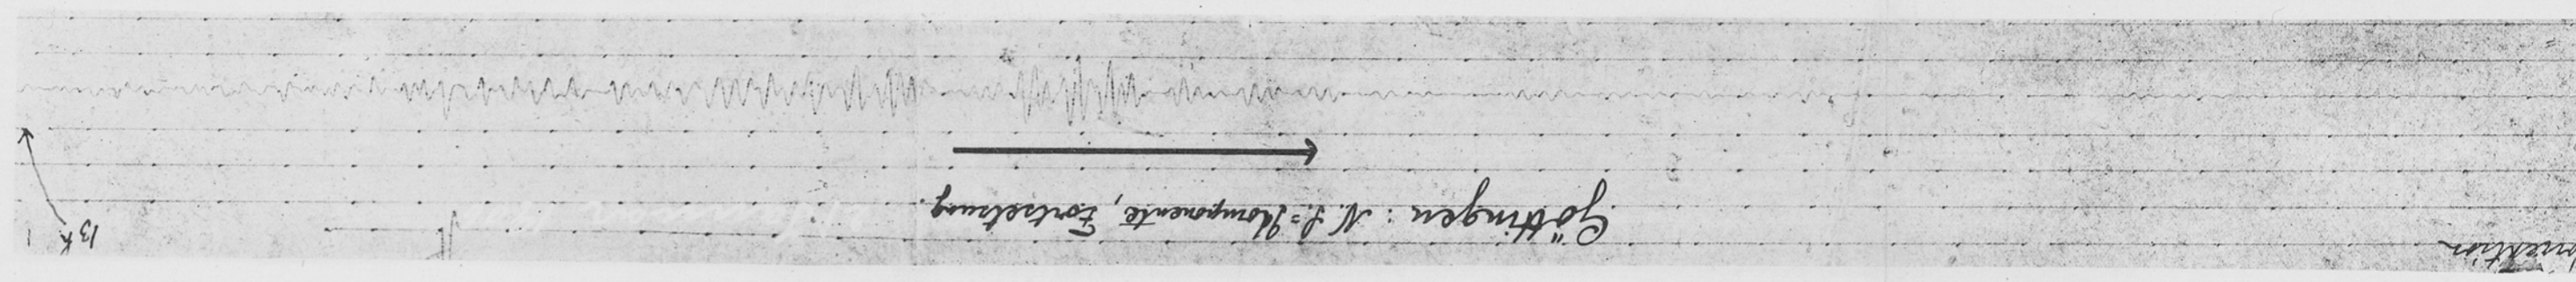 Göttingen: N.S.=Komponente, Fortsetzung.
13h